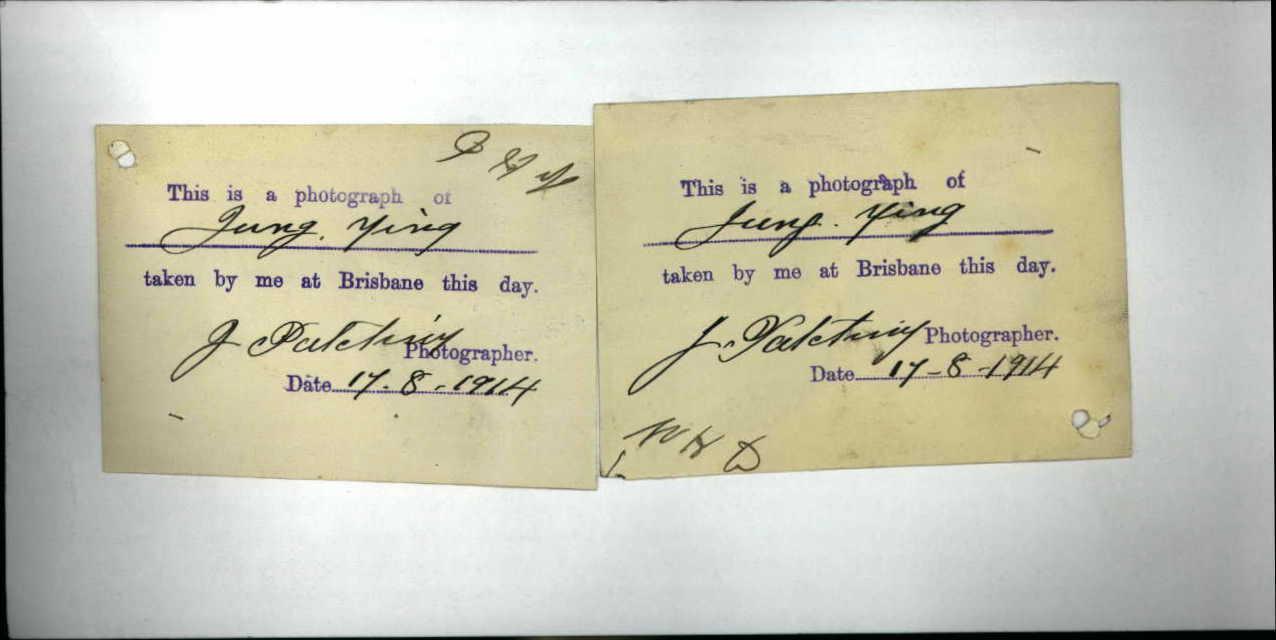 This is a photograph of
Jung. Ying
taken by me at Brisbane this day.
J
Photographer.
Date 17-8-1914
This is a photograph of
Jung. Ying
taken by me at Brisbane this day.
J.
Photographer.
Date 17-8-1914